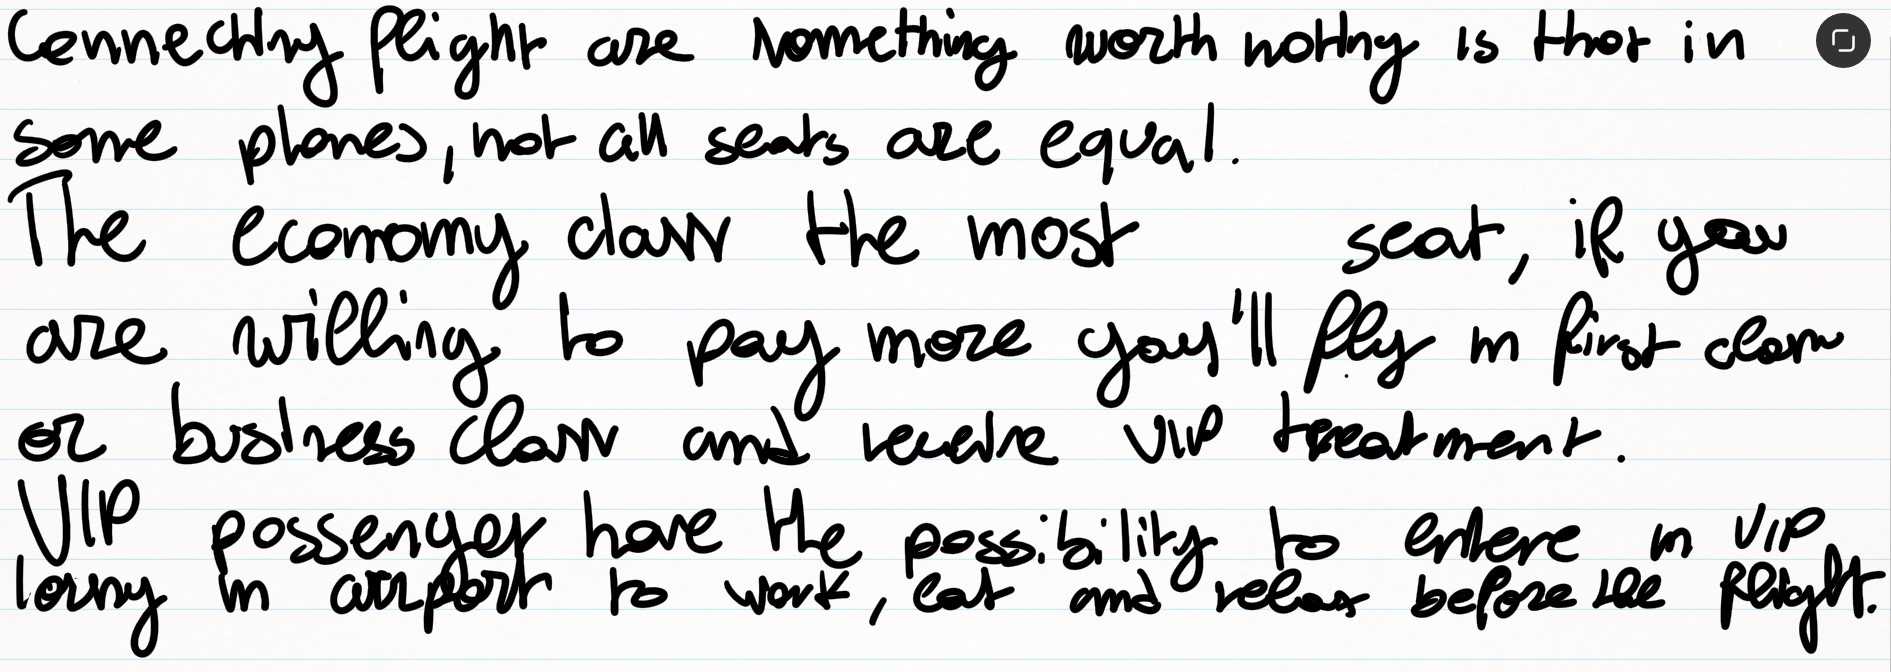 Connecting flight are something worth noting is that in
some planes, not all seats are equal.
The economy class the most seat, if you
are willing to pay more you'll fly in first class
or business class and receive VIP treatment.
VIP passenger have the possibility to entere in VIP
loung in airport to work, eat and relax before the flight.